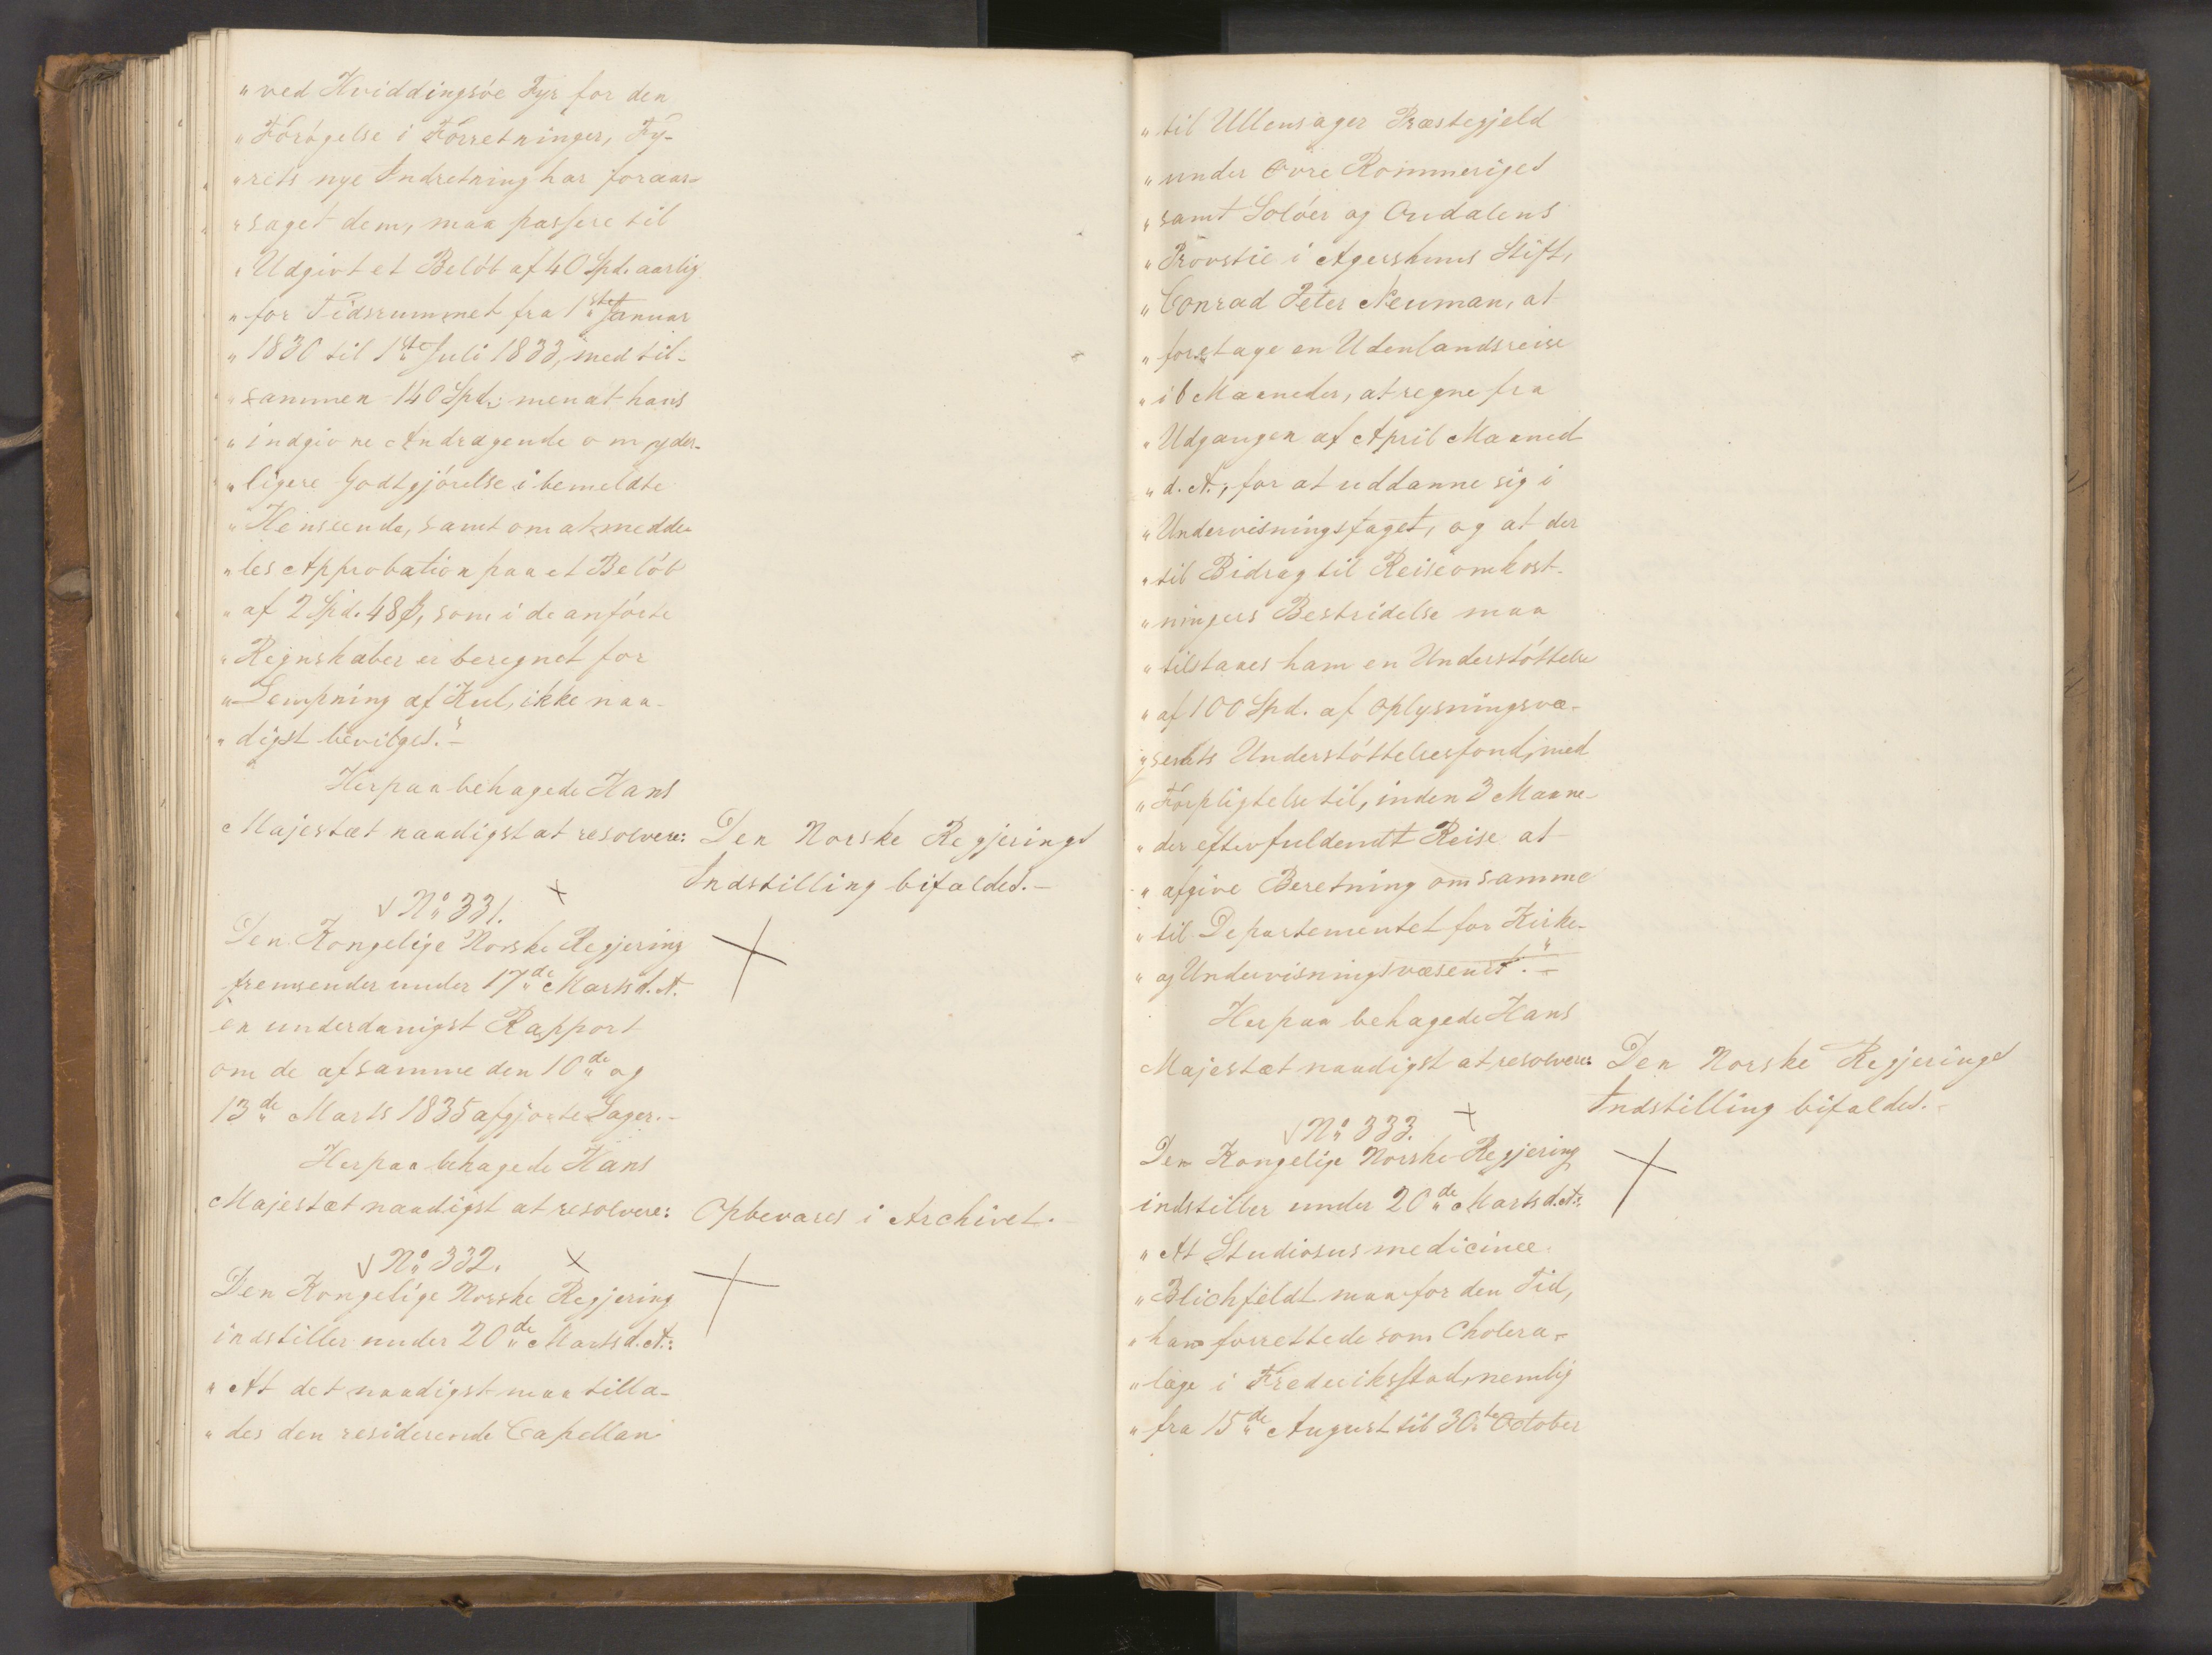 „ved Hviddingsöe Fyr for den
„Forögelse i Forretninger, Fy-
„rets nye Indretning har foraar-
„saget dem, maa passere til
„Udgivt et Belöb af 40 Spd. aarlig
„for Tidsrummet fra 1ste Januar
„1830 til 1ste Juli 1833, med til-
„sammen 140 Spd.; men at hans
„indgivne Andragende om yder-
„ligere Godtgjörelse i bemeldte
„Henseende, samt om at medde-
„les Approbation paa et Belöb
„af 2 Spd. 48 ß, som i de anförte
„Regnskaber er beregnet for
„Lempning af Kul, ikke naa-
„digst bevilges.“ –
Herpaa behagede Hans
Majestæt naadigst at resolvere: Den Norske Regjerings
Indstilling bifaldes. –
√ No 331. ×
Den Kongelige Norske Regjering
fremsender under 17de Marts d. A.
en underdanigst Rapport
om de af samme den 10de og
13de Marts 1835 afgjorte Sager. –
Herpaa behagede Hans
Majestæt naadigst at resolvere: Opbevares i Archivet. –
√ No 332. ×
Den Kongelige Norske Regjering
indstiller under 20de Marts d. A.:
„At det naadigst maa tilla-
„des den residerende Capellan
„til Ullensager Præstegjeld
„under Övre Rommeriges
„samt Solöer og Oudalens
„Provstie i Agershuus Stift,
„Conrad Peter Neuman, at
„foretage en Udenlandsreise
„i 6 Maaneder, at regne fra
„Udgangen af April Maaned
„d. A., for at uddanne sig i
„Undervisningsfaget, og at der
„til Bidrag til Reiseomkost-
„ningers Bestridelse maa
„tilstaaes ham en Understöttelse
„af 100 Spd. af Oplysningsvæ-
„senets Understöttelsesfond, med
„Forpligtelse til, inden 3 Maane-
„der efter fuldendt Reise at
„afgive Beretning om samme
„til Departementet for Kirke-
„og Undervisningsvæsenet.“ –
Herpaa behagede Hans
Majestæt naadigst at resolvere: Den Norske Regjerings
Indstilling bifaldes. –
√ No 333. ×
Den Kongelige Norske Regjering
indstiller under 20de Marts d. A.:
„At Studiosus medicinæ
„Blichfeldt maa for den Tid,
„han forrettede som Cholera-
„læge i Frederiksstad, nemlig
„fra 15de August til 30te October